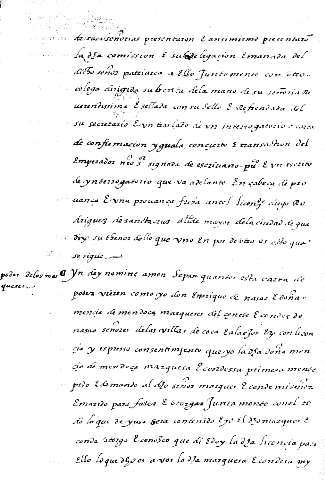 de sus señorias presentaron e ansimismo presentaro
la dha comission e subdelegacion emanada del
dicho señor patriarca a ello juntamente con otro
colega dirigida su henca de la mano de su señoria de
verendissima e sellada con su sello e refrendada del
su secretario e vn traslado de vn interrogatorio e carta
de confirmacion yguala concierto e transacion del
Emperador nro sr signada de escrivano puco e vn escrito
de ynterrogatorio que va adelante en cabeça de pro
uança e vna prouança fecha antel licendo diego Ro
driguez de santa cruz allde mayor de la ciudad de gua
dix su thenor de lo qual vno en pos de otro es esto que
se sigue
poder de los mar
queses
Yn dey nomine amen Sepan quantos esta carta de
poder vieren como yo don Enrrique de naçao e doña
mencia de mendoça marqueses del çenete e condes de
naçao señores de las villas de coca e alaejos etc con licen
cia y espreso consentimiento que yo la dha doña men
cia de mendoça marquesa e condessa primeramente
pido e demando al dho señor marques e conde mi señor
e marido para fazer e otorgar juntamente con el to
do lo que de yuso sera contenido e yo el dho marques e
conde otorgo e conosco que di e doy la dha licencia para
ello lo que dho es a vos la dha marquesa e condesa my